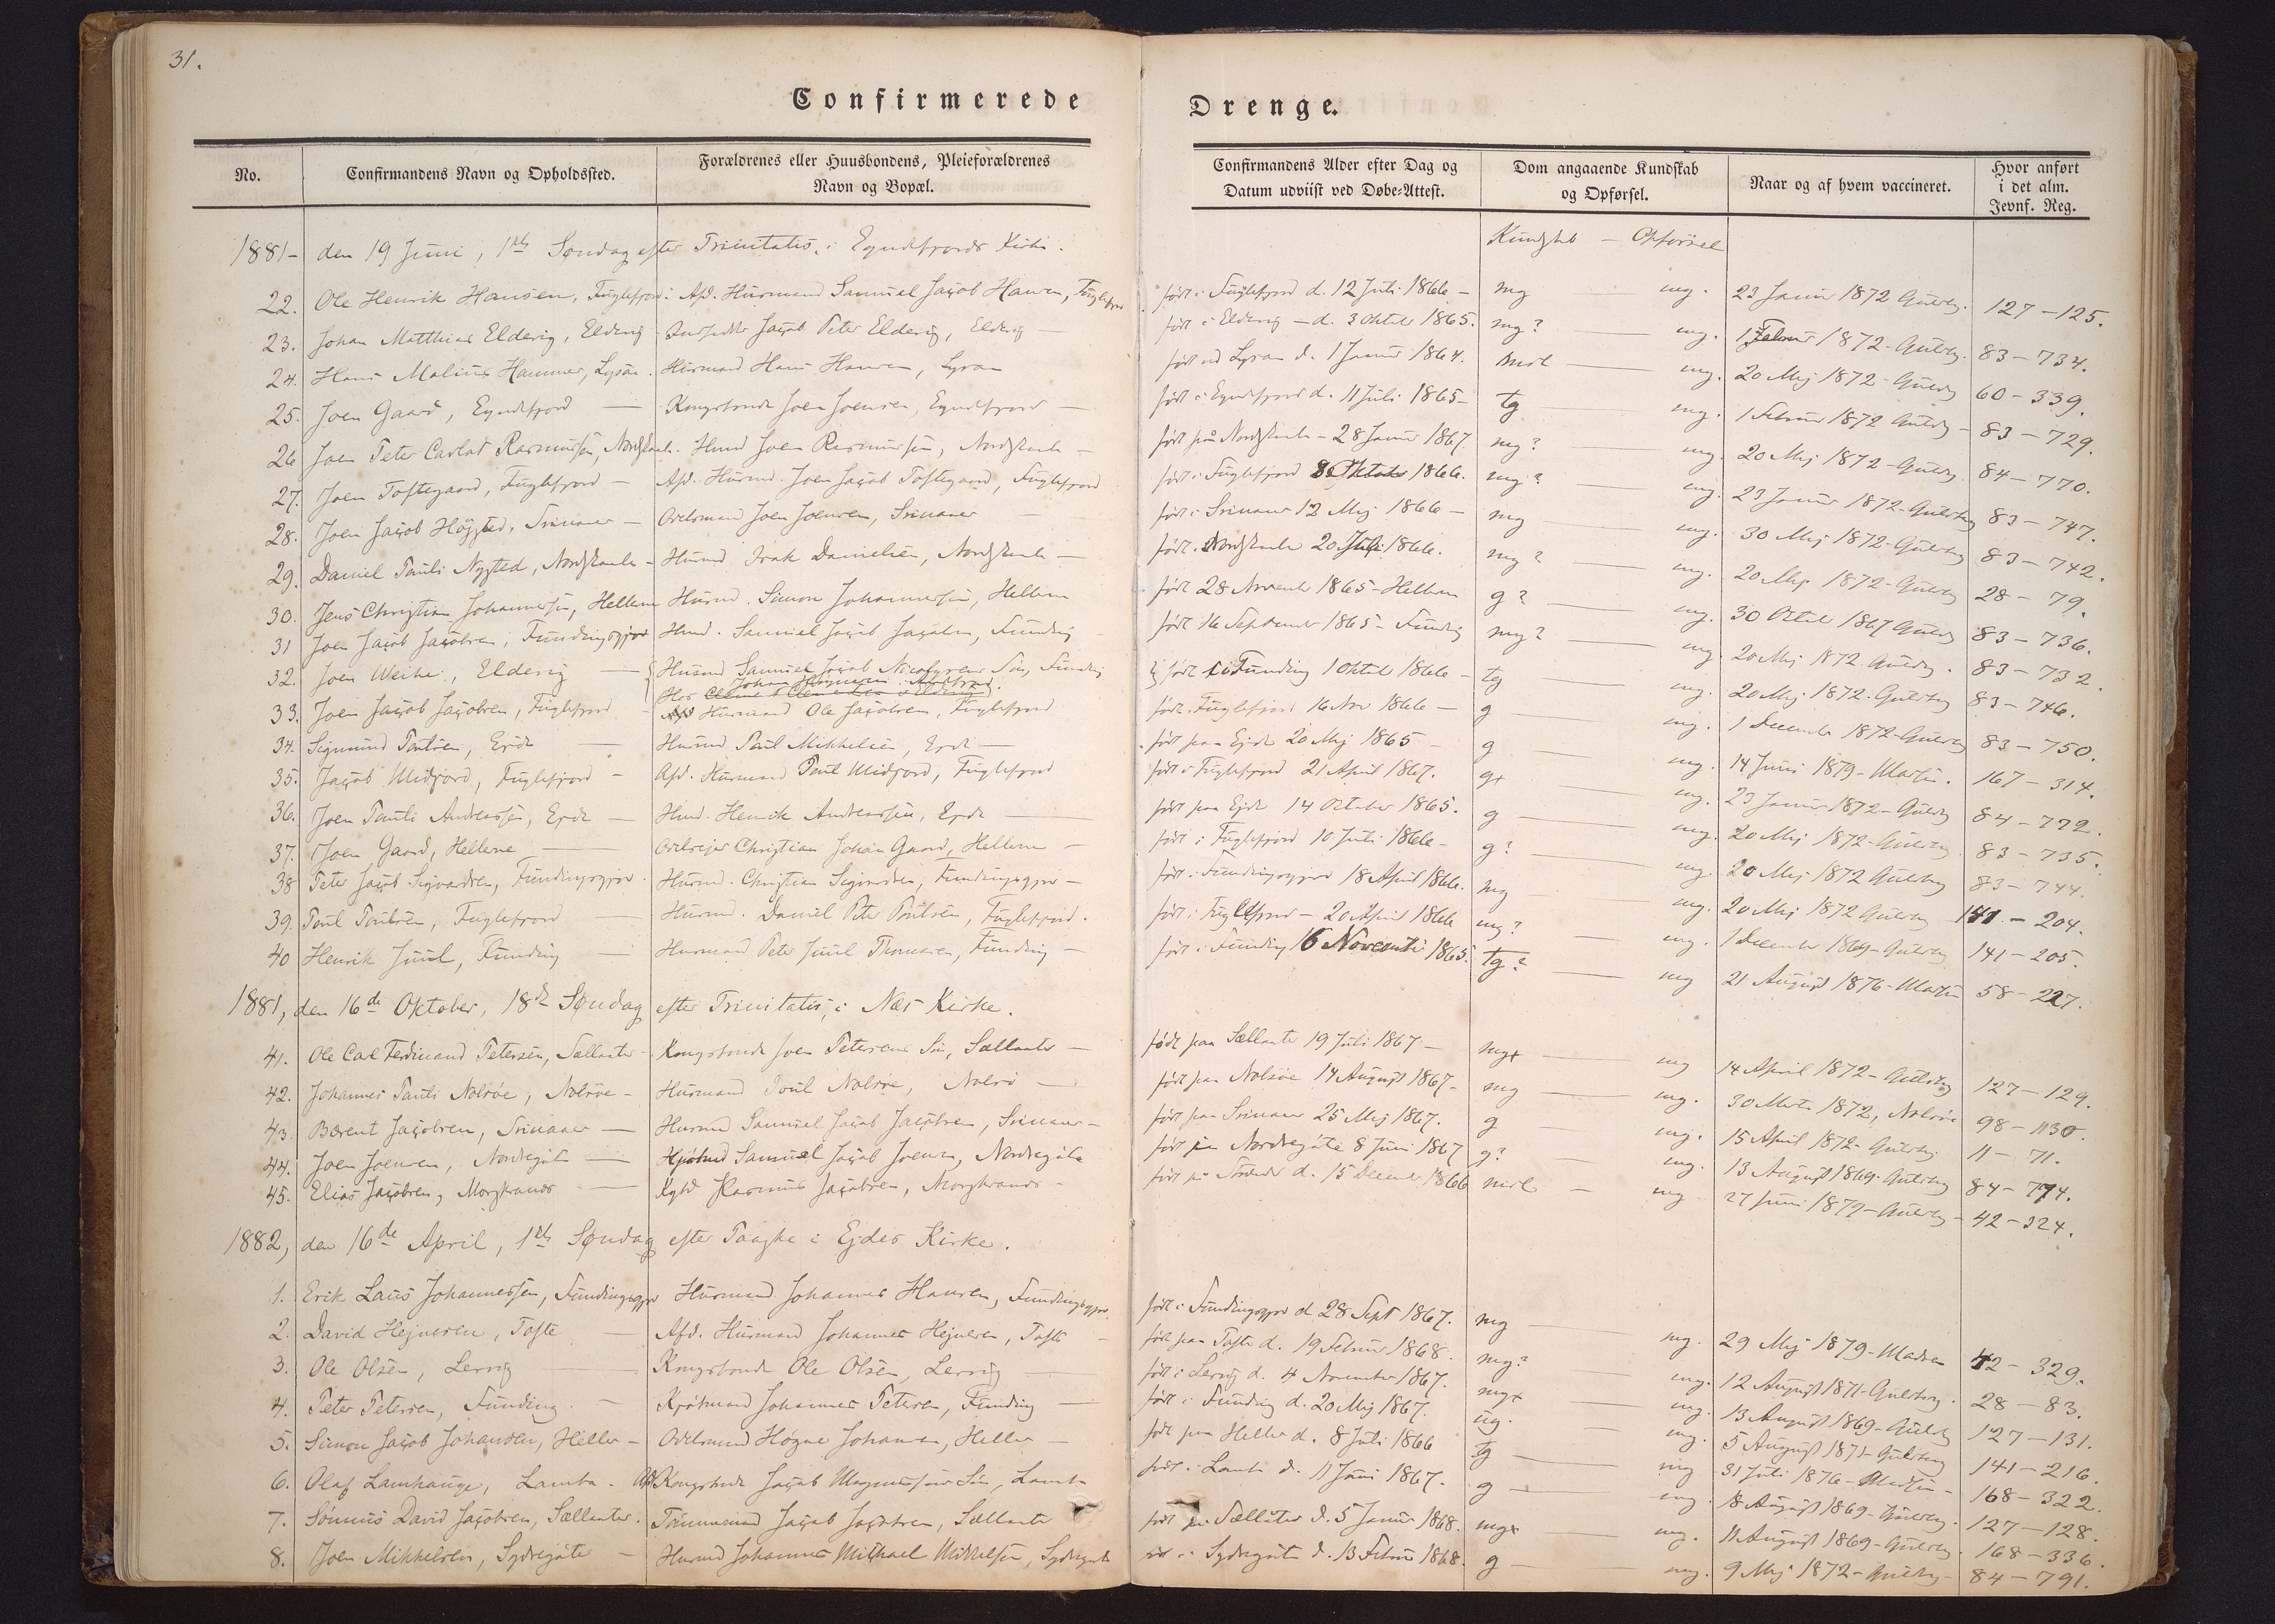 31.
Confirmerede Drenge.
No. Confirmandens Navn og Opholdssted. Forældrenes eller Huusbondens, Pleieforældrenes Navn og Bopæl. Confirmandens Alder efter Dag og Datum udviist ved Døbe-Attest. Dom angaaende Kundskab og Opførsel. Naar og af hvem vaccineret. Hvor anført i det alm. Jevnf. Reg.
1881 - den 19 Juni, 1ste Søndag efter Trinitatis, i Kirke. Kundskab - Opførsel
22. Ole Henrik Hansen, Fuglefjord Afd. Husmand Samuel Jacob Hansen, Fuglefjord født i Fuglefjord d. 12 Juli 1866 - mg mg. 23 Januar 1872 Gulerg. 127 - 125.
23. Johan Matthias Eldevig, Eldevig Jacob Peter Eldevig, Eldevig født i Eldevig - d. 3 Oktober 1865. mg? mg. 1 Februar 1872 - 83 - 734.
24. Hans Malius Hammer, Husmand Hans Hansen, født d. 1 Januar 1864. mdl mg. 20 Mej 1872 - 60 - 339.
25. Joen Gaard, Kongsbonde Joen Joensen, født i d. 11 Juli 1865 - tg mg. 1 Februar 1872 83 - 729.
26 Joen Peter Carlat Rasmussen, Nordskaale Husmd Joen Rasmussen, Nordskaale født på Nordskaale - 28 Januar 1867 mg? mg. 20 Mej 1872 - 84 - 770.
27. Joen Toftegaard, Fuglefjord - Afd. Husmd. Joen Jacob Toftegaard, Fuglefjord født i Fuglefjord 8 Oktober 1866. mg? mg. 23 Januar 1872 - 83 - 747.
28. Joen Jacob Højsted, Svinaaer - Odelsmand Joen Joensen, Svinaaer født i Svinaaer 12 Mej 1866 - mg mg. 30 Mej 1872 - 83 - 742.
29. Daniel Pauli Nysted, Nordskaale - Husmd Isak Danielsen, Nordskaale - født i Nordskaale 20 Juli 1866. mg? mg. 20 Mej 1872 - 28 - 79.
30. Jens Christian Johannessen, Hellerne Husmd. Simon Johannessen, Hellerne født 28 November 1865 - Hellerne g? mg. 30 Oktober 1867 83 - 736.
31 Joen Jacob Jacobsen, Fundingsgjov Husmd. Samuel Jacob Jacobsen, Funding født 16 September 1865 - Funding mg? mg. 20 Mej 1872. 83 - 732.
32. Joen Weihe, Eldevig Husmd Samuel Jacob Søn, Funding Hos født i Funding 1 Oktober 1866 - tg mg. 20 Mej 1872. 83 - 746.
33. Joen Jacob Jacobsen, Fuglefjord Afd Husmand Ole Jacobsen, Fuglefjord født Fuglefjord 16 Nov 1866 - g mg. 1 December 1872 - 83 - 750.
34. Sigmund Poulsen, Ejde Husmd Poul Mikkelsen, Ejde - født paa Ejde 20 Mej 1865 - g mg. 14 Juni 1879 - 167 - 314.
35. Jacob Midjord, Fuglefjord - Afd. Husmand Poul Midjord, Fuglefjord født i Fuglefjord 21 April 1867. g+ mg. 23 Januar 1872 - 84 - 772.
36. Joen Pauli Andreassen, Ejde - Husmd. Henrik Andreassen, Ejde født paa Ejde 14 Oktober 1865. g mg. 20 Mej 1872 - 83 - 735.
37. Joen Gaard, Hellerne Odelsejer Christian Johan Gaard, Hellerne - født i Fuglefjord 10 Juli 1866 - g? mg. 20 Mej 1872 83 - 744.
38 Peter Jacob Sigvardsen, Fundingsgjov. Husmd. Christian Sigvardsen, Fundingsgjov - født i Fundingsgjov 18 April 1866. mg mg. 20 Mej 1872 141 - 204.
39. Poul Poulsen, Fuglefjord Husmd. Daniel Peter Poulsen, Fuglefjord. født i Fuglefjord - 20 April 1866 mg? mg. 1 December 1869 - 141 - 205.
40 Henrik Juul, Funding Husmand Peter Juul Thomasen, Funding - født i Funding 16 November 1865. tg? mg 21 August 1876 - 58 - 227.
1881, den 16de Oktober, 18de Søndag efter Trinitatis, i Næs Kirke.
41. Ole Carl Ferdinand Petersen, Sellatre - Kongsbonde Joen Petersens Søn, Sellatre - født paa Sellatre 19 Juli 1867 - mg+ mg 14 April 1872 - 127 - 129.
42. Johannes Pauli Nolsøe, Nolsøe - Husmand Poul Nolsøe, Nolsø født paa Nolsøe 14 August 1867 - mg mg. 30 Marts 1872, Nolsøe 98 - 1130.
43. Bærent Jacobsen, Svinaaer - Husmd Samuel Jacob Jacobsen, Svinaaer - født paa Svinaaer 25 Mej 1867. g mg. 15 April 1872 - 11 - 71.
44. Joen Joensen, Nordregøte Samuel Jacob Joensen, Nordregøte født paa Nordregøte 8 Juni 1867 g? mg. 13 August 1869 - 84 - 774.
45. Elias Jacobsen, Morskranes Rasmus Jacobsen, Morskranes - født på d. 15 December 1866 mdl - mg 27 Juni 1879 - 42 - 324.
1882, den 16de April, 1ste Søndag efter Paaske i Ejdes Kirke.
1. Erik Laus Johannessen, Fundingsgjov Husmand Johannes Hansen, Fundingsgjov. født i Fundingsgjov d 28 Sept 1867. mg mg. 29 Mej 1879 - Madsen 42 - 329.
2. David Hejnesen, Tofte Afd. Husmand Johannes Hejnesen, Tofte - født paa Tofte d. 19 Februar 1868. mg? mg. 12 August 1871 - 28 - 83.
3. Ole Olsen, Lervig Kongsbonde Ole Olsen, Lervig født i Lervig d. 4 November 1867. mg+ mg. 13 August 1869 - 127 - 131.
4. Peter Petersen, Funding - Johannes Petersen, Funding født i Funding d. 20 Mej 1867. ug. mg. 5 August 1871 - 141 - 216.
5. Simon Jacob Johansen, Heller - Odelsmand Høgne Johansen, Heller født paa Heller d. 8 Juli 1866 tg mg 31 Juli 1876 - Madsen - 168 - 322.
6. Olaf Lamhauge, Lamba. Afd Kongsbonde Jacob Magnussens Søn, Lamba født i Lamba d. 11 Juni 1867. g mg. 18 August 1869 - 127 - 128.
7. David Jacobsen, Sellatre. Tømmermand Jacob Jacobsen, Sellatre født paa Sellatre d. 5 Januar 1868. mg+ mg. 11 August 1869 - 168 - 336.
8. Joen Mikkelsen, Sydregøte - Husmd Johannes Michael Mikkelsen, Sydregøte født i Sydregøte d. 13 Februar 1868. g mg. 9 Mej 1872 - 84 - 791.